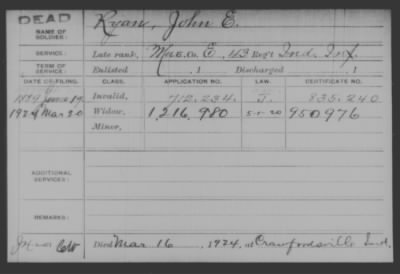 DEAD
NAME OF SOLDIER: Ryan, John E.
SERVICE: Late rank, Co. E, 43 Reg't Ind. Inf.
TERM OF SERVICE: Enlisted , 1 Discharged , 1
DATE OF FILING. CLASS. APPLICATION NO. LAW. CERTIFICATE NO.
1889 19 Invalid, 712.234. J. 835.240
1924 Mar 20 Widow, 1,216,980 5-1-20 950976
Minor,
ADDITIONAL SERVICES:
REMARKS:
Died Mar 16, 1924, at Crawfordsville Ind.